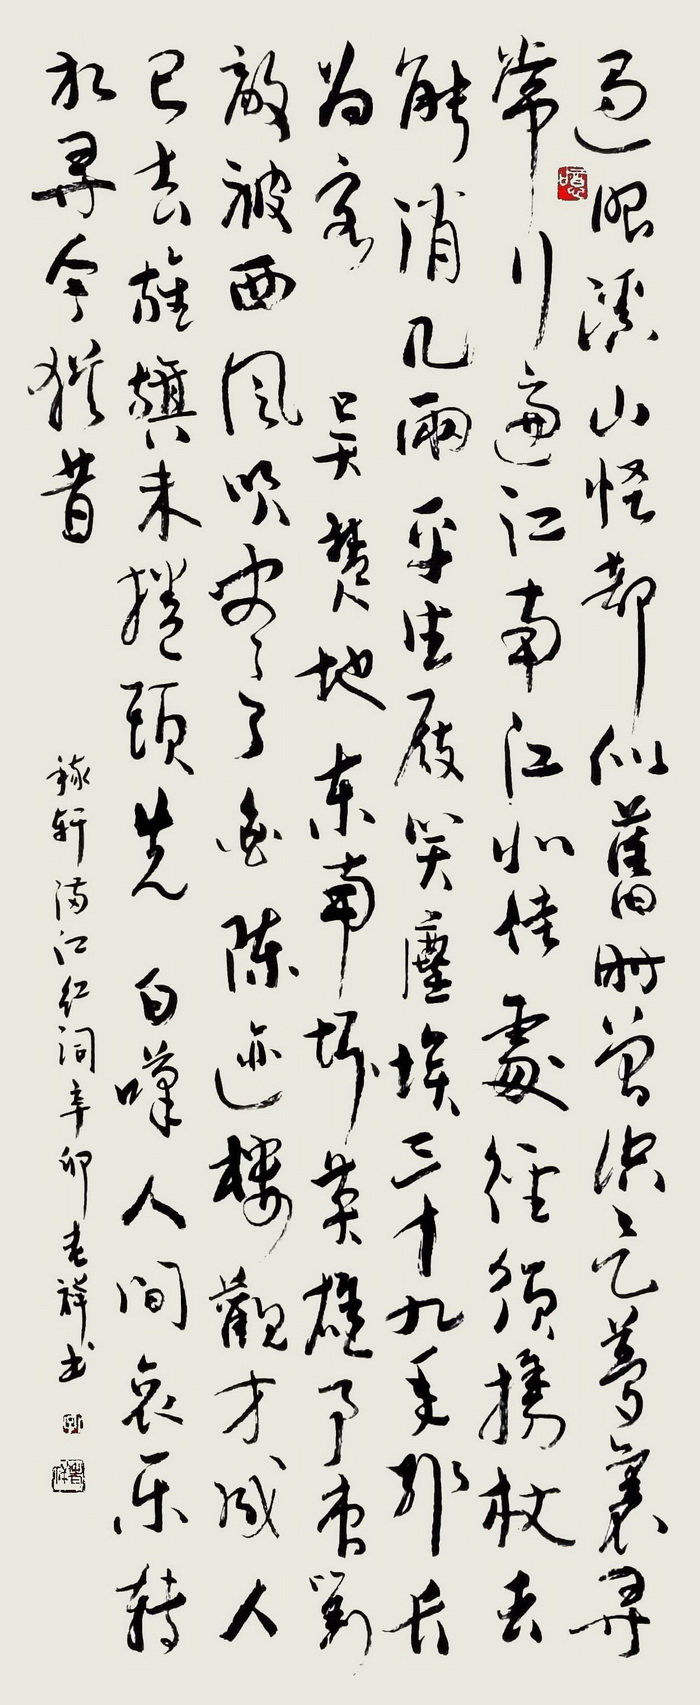 過眼溪山怪都似舊時曾识是夢裏尋
常行遍江南江北佳處徑須攜杖去
能消几兩平生屐笑塵埃三十九年非長
为客吴楚地东南坼英雄事曹劉
敵被西風吹尽了無陳迹樓觀才成人
已去旌旗未捲頭先白嘆人間哀乐轉
相尋今猶昔
稼轩满江红词辛卯祥书